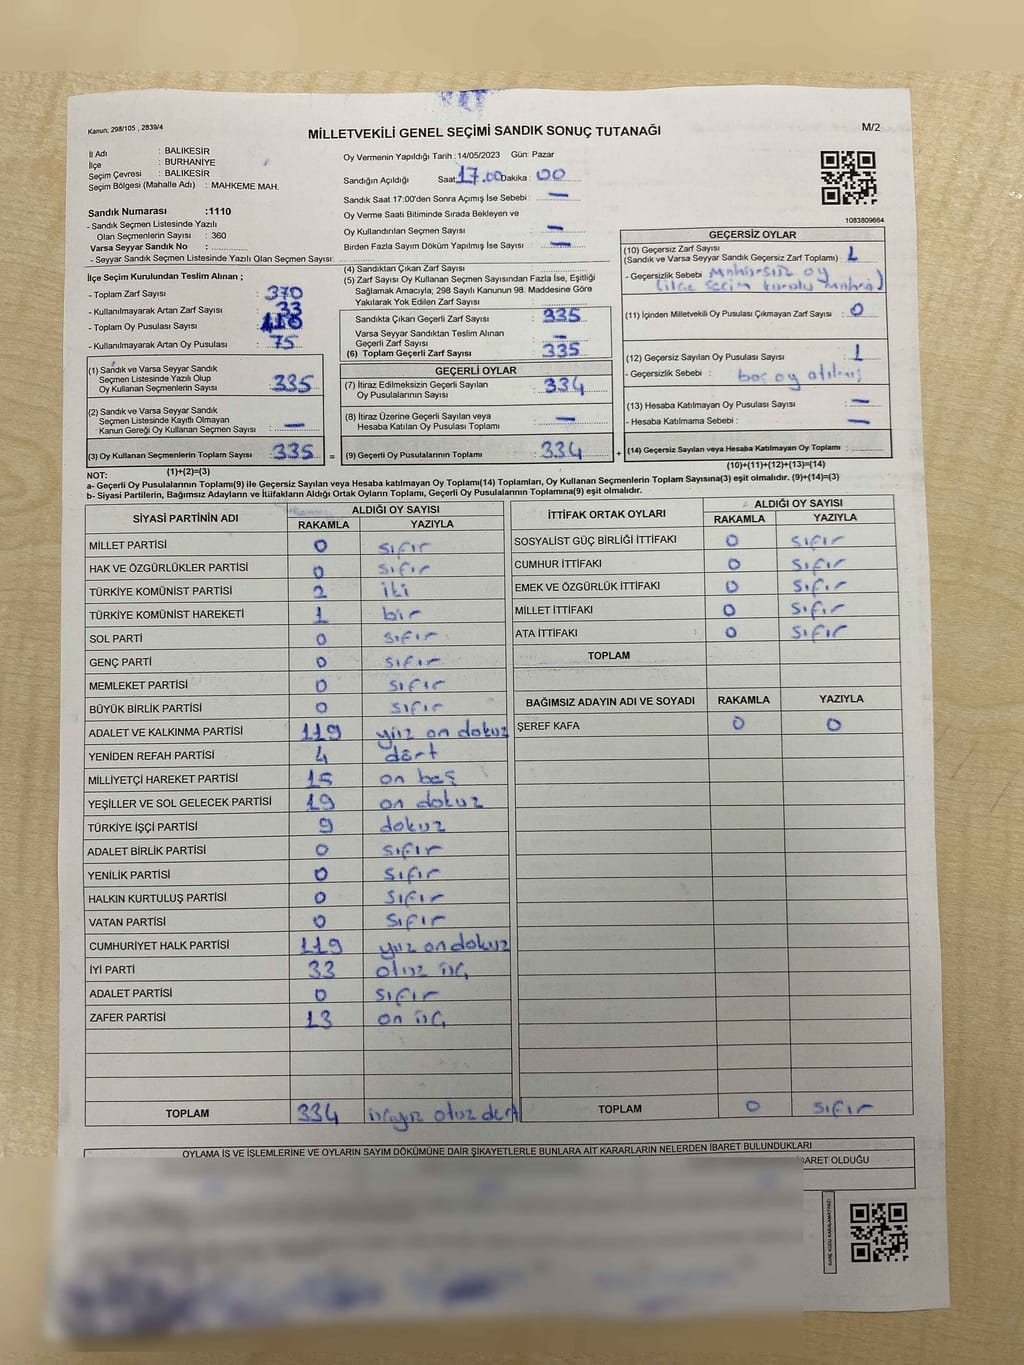 Kanun; 298/105 , 2839/4
MİLLETVEKİLİ GENEL SEÇİMİ SANDIK SONUÇ TUTANAĞI
M/2
İl Adı : BALIKESİR
İlçe : BURHANİYE
Seçim Çevresi : BALIKESİR
Seçim Bölgesi (Mahalle Adı) : MAHKEME MAH.
Sandık Numarası :1110
- Sandık Seçmen Listesinde Yazılı
Olan Seçmenlerin Sayısı : 360
Varsa Seyyar Sandık No :
- Seyyar Sandık Seçmen Listesinde Yazılı Olan Seçmen Sayısı:
Oy Vermenin Yapıldığı Tarih :14/05/2023 Gün: Pazar
Sandığın Açıldığı Saat: 17.00 Dakika : 00
Sandık Saat 17:00'den Sonra Açımış İse Sebebi : —
Oy Verme Saati Bitiminde Sırada Bekleyen ve
Oy Kullandırılan Seçmen Sayısı : —
Birden Fazla Sayım Döküm Yapılmış İse Sayısı : —
1083809664
İlçe Seçim Kurulundan Teslim Alınan ;
- Toplam Zarf Sayısı : 370
- Kullanılmayarak Artan Zarf Sayısı : 33
- Toplam Oy Pusulası Sayısı :
- Kullanılmayarak Artan Oy Pusulası : 75
(1) Sandık ve Varsa Seyyar Sandık
Seçmen Listesinde Yazılı Olup
Oy Kullanan Seçmenlerin Sayısı : 335
(2) Sandık ve Varsa Seyyar Sandık
Seçmen Listesinde Kayıtlı Olmayan
Kanun Gereği Oy Kullanan Seçmen Sayısı : —
(3) Oy Kullanan Seçmenlerin Toplam Sayısı : 335 =
(1)+(2)=(3)
(4) Sandıktan Çıkan Zarf Sayısı :
(5) Zarf Sayısı Oy Kullanan Seçmen Sayısından Fazla İse, Eşitliği
Sağlamak Amacıyla; 298 Sayılı Kanunun 98. Maddesine Göre
Yakılarak Yok Edilen Zarf Sayısı :
Sandıkta Çıkan Geçerli Zarf Sayısı : 335
Varsa Seyyar Sandıktan Teslim Alınan
Geçerli Zarf Sayısı : —
(6) Toplam Geçerli Zarf Sayısı : 335
GEÇERLİ OYLAR
(7) İtiraz Edilmeksizin Geçerli Sayılan
Oy Pusulalarının Sayısı : 334
(8) İtiraz Üzerine Geçerli Sayılan veya
Hesaba Katılan Oy Pusulası Toplamı : —
(9) Geçerli Oy Pusulalarının Toplamı : 334 +
GEÇERSİZ OYLAR
(10) Geçersiz Zarf Sayısı
(Sandık ve Varsa Seyyar Sandık Geçersiz Zarf Toplamı) : 1
- Geçersizlik Sebebi : mühürsüz oy
(ilçe seçim kurulu mührü)
(11) İçinden Milletvekili Oy Pusulası Çıkmayan Zarf Sayısı : 0
(12) Geçersiz Sayılan Oy Pusulası Sayısı : 1
- Geçersizlik Sebebi : boş oy atılmış
(13) Hesaba Katılmayan Oy Pusulası Sayısı : —
- Hesaba Katılmama Sebebi : —
(14) Geçersiz Sayılan veya Hesaba Katılmayan Oy Toplamı :
(10)+(11)+(12)+(13)=(14)
NOT:
a- Geçerli Oy Pusulalarının Toplamı(9) ile Geçersiz Sayılan veya Hesaba katılmayan Oy Toplamı(14) Toplamları, Oy Kullanan Seçmenlerin Toplam Sayısına(3) eşit olmalıdır. (9)+(14)=(3)
b- Siyasi Partilerin, Bağımsız Adayların ve İtüfakların Aldığı Ortak Oyların Toplamı, Geçerli Oy Pusulalarının Toplamına(9) eşit olmalıdır.
SİYASİ PARTİNİN ADI ALDIĞI OY SAYISI
RAKAMLA YAZIYLA
MİLLET PARTİSİ 0 sıfır
HAK VE ÖZGÜRLÜKLER PARTİSİ 0 sıfır
TÜRKİYE KOMÜNİST PARTİSİ 2 iki
TÜRKİYE KOMÜNİST HAREKETİ 1 bir
SOL PARTİ 0 sıfır
GENÇ PARTİ 0 sıfır
MEMLEKET PARTİSİ 0 sıfır
BÜYÜK BİRLİK PARTİSİ 0 sıfır
ADALET VE KALKINMA PARTİSİ 119 yüz on dokuz
YENİDEN REFAH PARTİSİ 4 dört
MİLLİYETÇİ HAREKET PARTİSİ 15 on beş
YEŞİLLER VE SOL GELECEK PARTİSİ 19 on dokuz
TÜRKİYE İŞÇİ PARTİSİ 9 dokuz
ADALET BİRLİK PARTİSİ 0 sıfır
YENİLİK PARTİSİ 0 sıfır
HALKIN KURTULUŞ PARTİSİ 0 sıfır
VATAN PARTİSİ 0 sıfır
CUMHURİYET HALK PARTİSİ 119 yüz on dokuz
İYİ PARTİ 33 otuz üç
ADALET PARTİSİ 0 sıfır
ZAFER PARTİSİ 13 on üç
TOPLAM 334 üçyüz otuz dört
İTTİFAK ORTAK OYLARI ALDIĞI OY SAYISI
RAKAMLA YAZIYLA
SOSYALİST GÜÇ BİRLİĞİ İTTİFAKI 0 sıfır
CUMHUR İTTİFAKI 0 sıfır
EMEK VE ÖZGÜRLÜK İTTİFAKI 0 sıfır
MİLLET İTTİFAKI 0 sıfır
ATA İTTİFAKI 0 sıfır
TOPLAM
BAĞIMSIZ ADAYIN ADI VE SOYADI RAKAMLA YAZIYLA
ŞEREF KAFA 0 0
TOPLAM 0 sıfır
OYLAMA İŞ VE İŞLEMLERİNE VE OYLARIN SAYIM DÖKÜMÜNE DAİR ŞİKAYETLERLE BUNLARA AİT KARARLARIN NELERDEN İBARET BULUNDUKLARI
İBARET OLDUĞU